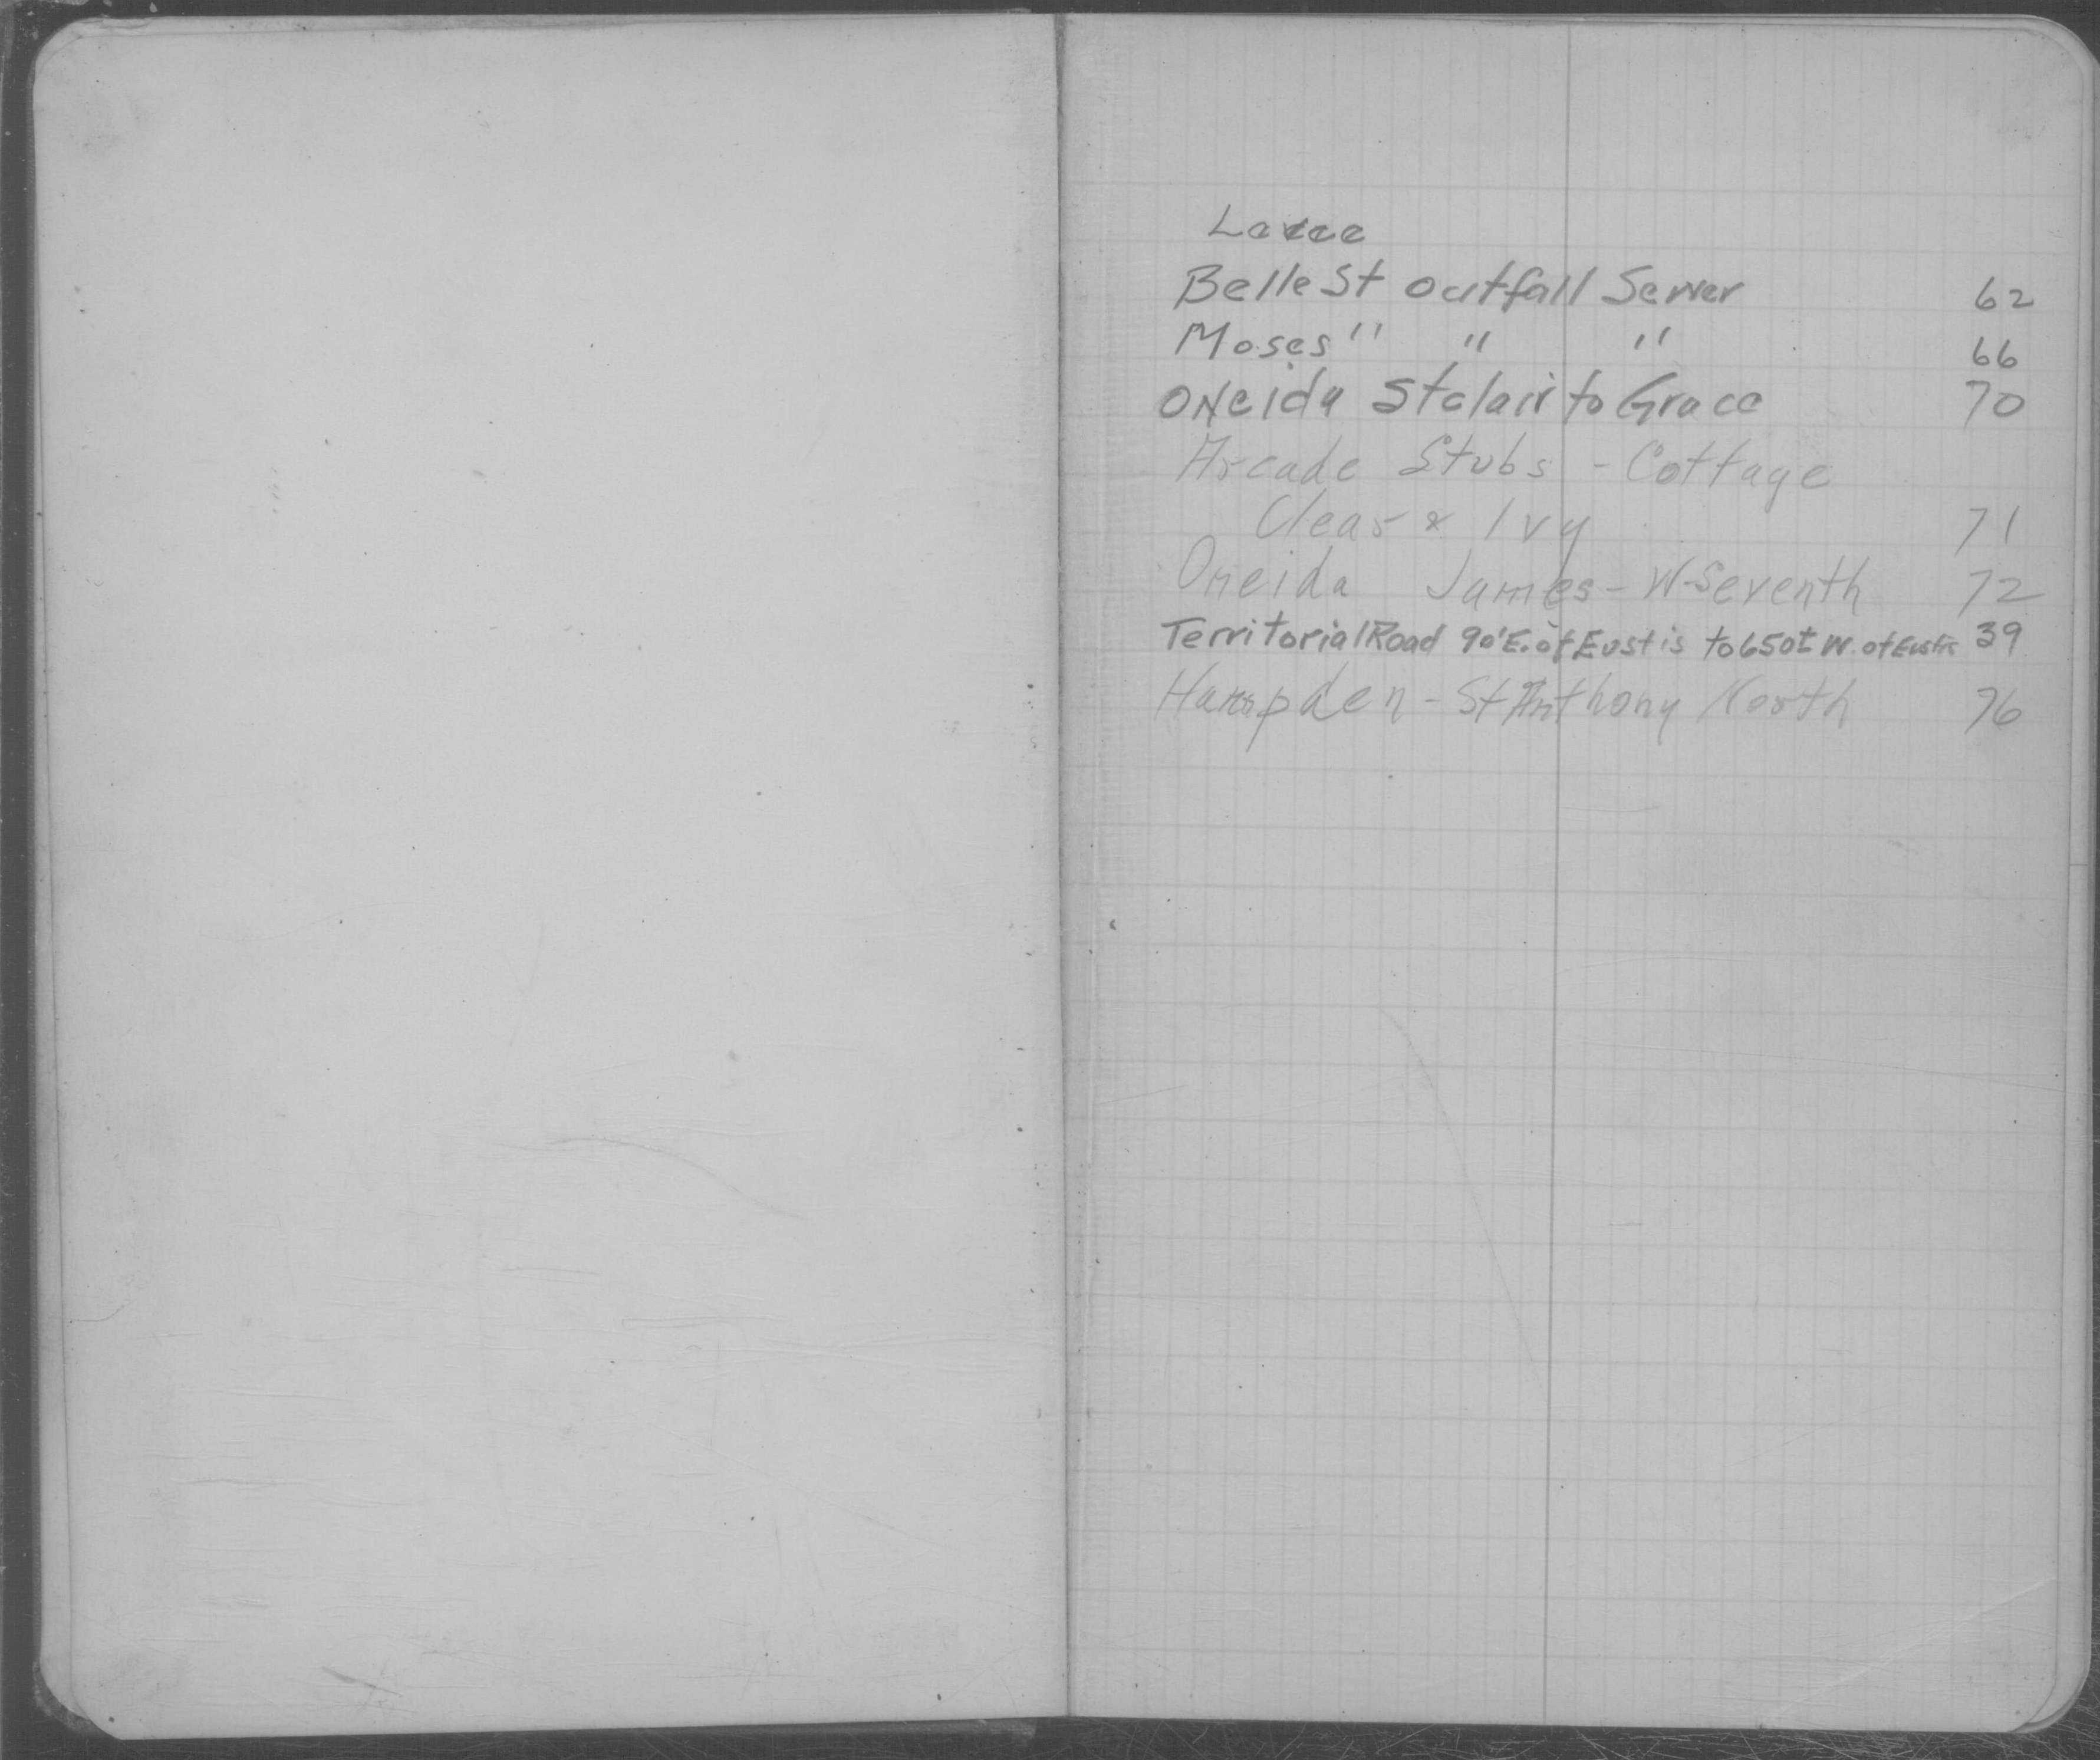 Belle St outfall Sewer 62
Moses " " " 66
Oneida St clair to Grace 70
Arcade Stubs - Cottage
Clear & Ivy 71
Oneida James - W-Seventh 72
Territorial Road 90'E. of Eustis to 650± W. of Eustis 39
Hampden - St Anthony North 76